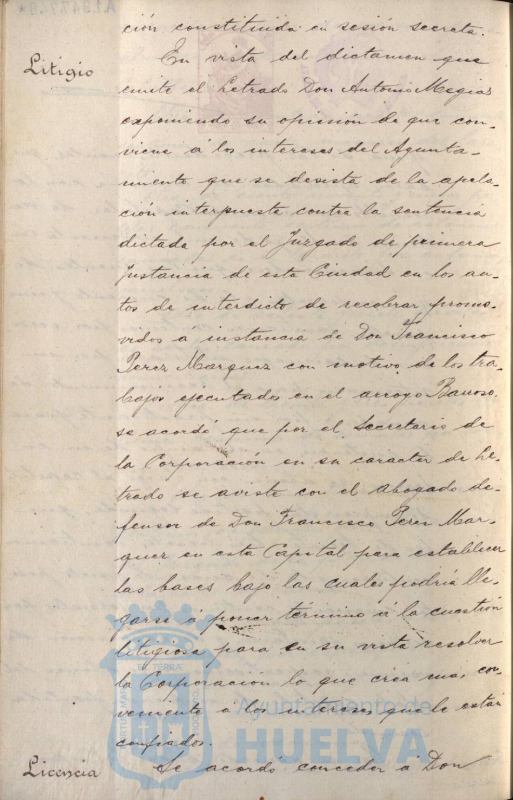 ción constituida en sesión secreta.
Litigio
En vista del dictamen que
emite el Letrado Don Antonio Megias
exponiendo su opinión de que con-
viene á los intereses del Ayunta-
miento que se desista de la apela-
ción interpuesta contra la sentencia
dictada por el Juzgado de primera
Instancia de esta Ciudad en los au-
tos de interdicto de recobrar promo-
vidos á instancia de Don Francisco
Perez Marquez con motivo de los tra-
bajos ejecutados en el arroyo Barroso,
se acordó que por el Secretario de
la Corporación en su caracter de Le-
trado se aviste con el abogado de-
fensor de Don Francisco Perez Mar-
quez en esta Capital para establecer
las bases bajo las cuales podría lle-
garse á poner término á la cuestión
litigiosa para en su vista resolver
la Corporación lo que crea mas con-
veniente á los intereses que le estan
confiados.
Licencia
Se acordó conceder á Don
Ayuntamiento de
HUELVA